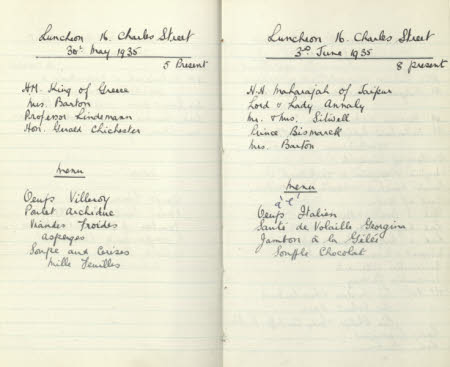 Luncheon 16. Charles Street
30th May 1935
5 Present
HM. King of Greece
Mrs. Barton
Professor Lindemann
Hon. Gerald Chichester
Menu
Oeufs Villeroy
Poulet Archiduc
Viandes Froides
asperges
Soupe aux Cerises
Mille Feuilles
Luncheon 16. Charles Street
3rd June 1935
8 present
H.H. Maharajah of Jaipur
Lord & Lady Annaly
Mr. & Mrs. Sitwell
Prince Bismarck
Mrs. Barton
Menu
à l'
Oeufs Italien
Sauté de Volaille Georgina
Jambon à la Gelée
Souffle Chocolat